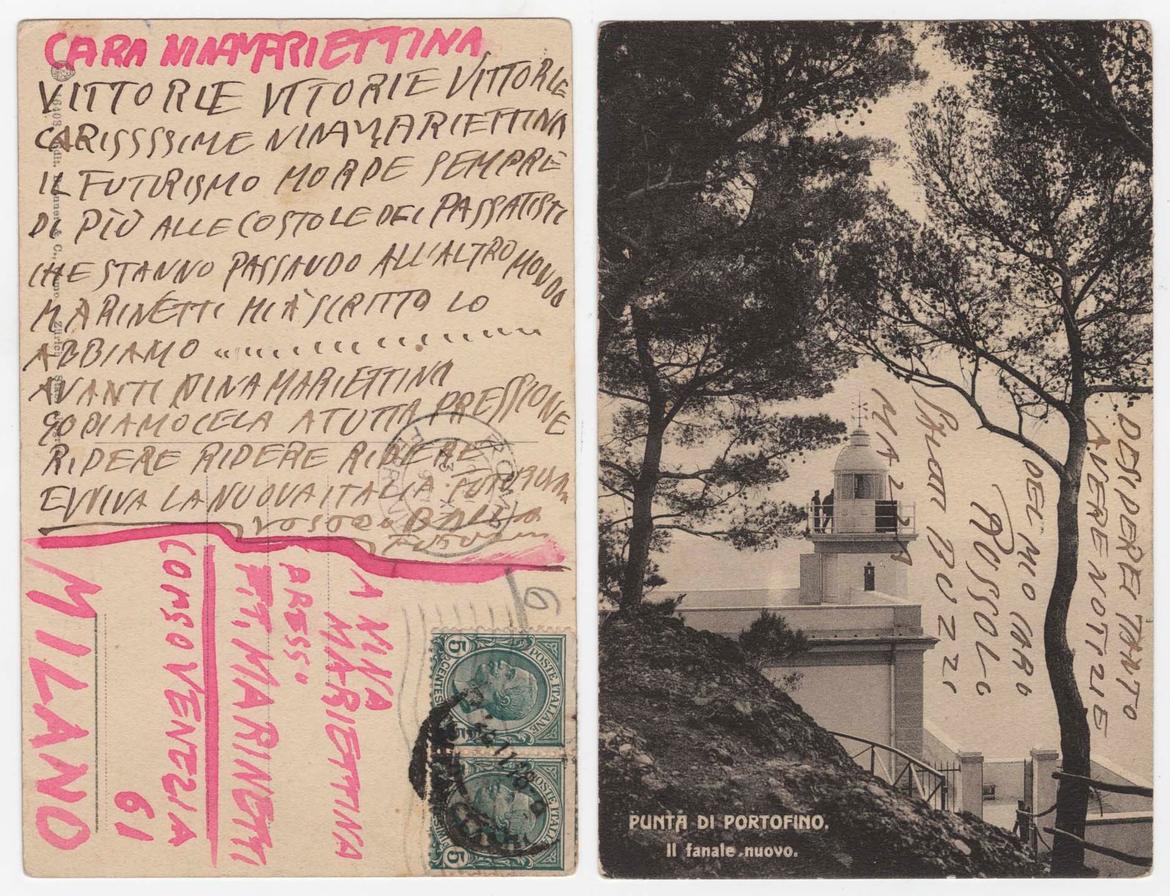 CARA NINAMARIETTINA
VITTORIE VITTORIE VITTORIE
CARISSSSIME NINAMARIETTINA
IL FUTURISMO MORDE SEMPRE
DI PIÙ ALLE COSTOLE DEI PASSATISTI
CHE STANNO PASSANDO ALL'ALTRO MONDO
MARINETTI MI À SCRITTO LO
ABBIAMO
AVANTI NINAMARIETTINA
GODIAMOCELA A TUTTA PRESSIONE
RIDERE RIDERE RIDERE
EVVIVA LA NUOVA ITALIA FUTURISTA
VOSTRO BALLA
A NINA
MARIETTINA
PRESSO
F.T. MARINETTI
CORSO VENEZIA
61
MILANO
6
POSTE ITALIANE
5 CENTES. 5
POSTE ITALIANE
5
ROMA
DESIDEREI TANTO
AVERE NOTIZIE
DEL MIO CARO
RUSSOLO
BUZZI
PUNTA DI PORTOFINO.
Il fanale nuovo.